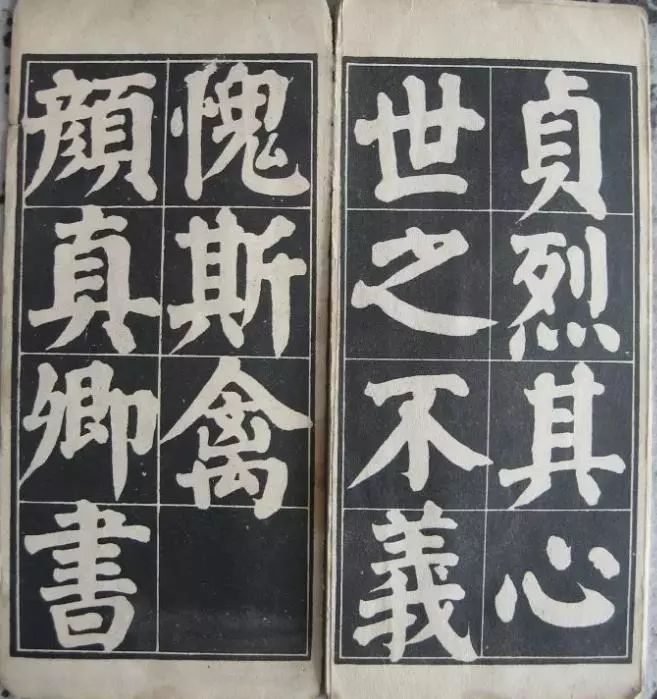 貞烈其心
世之不義
愧斯禽
顏真卿書